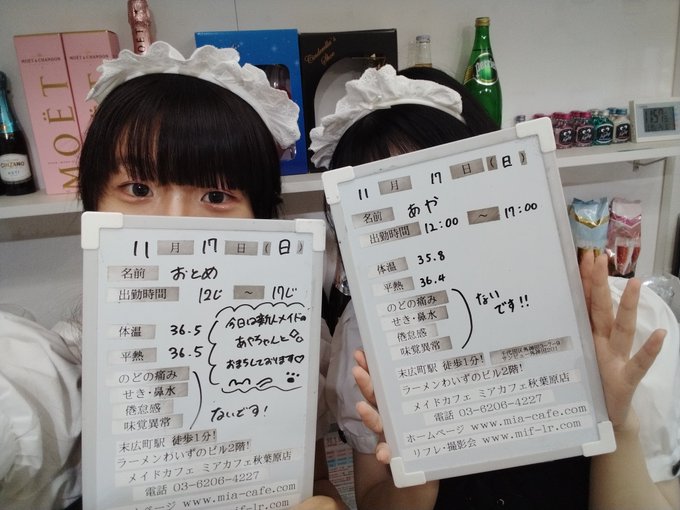 MOËT & CHANDON
MOËT & CHANDON
MOËT
Cinderella's
Shoe
CINZANO
11月17日(日)
名前 おとめ
出勤時間 12じ ~ 17じ
体温 36.5
平熱 36.5
のどの痛み
せき・鼻水
倦怠感
味覚異常
ないです!
今日は新人メイドの
あやちゃんと
おまちしております♡
末広町駅 徒歩1分!
ラーメンわいずのビル2階!
メイドカフェ ミアカフェ秋葉原店
電話 03-6206-4227
ームページ www.mia-cafe.com
11月17日(日)
名前 あや
出勤時間 12:00 ~ 17:00
体温 35.8
平熱 36.4
のどの痛み
せき・鼻水
倦怠感
味覚異常
ない
です!!
末広町駅 徒歩1分!
ラーメンわいずのビル2階!
メイドカフェ ミアカフェ秋葉原店
電話 03-6206-4227
ホームページ www.mia-cafe.com
リフレ・撮影会 www.mif-lr.com